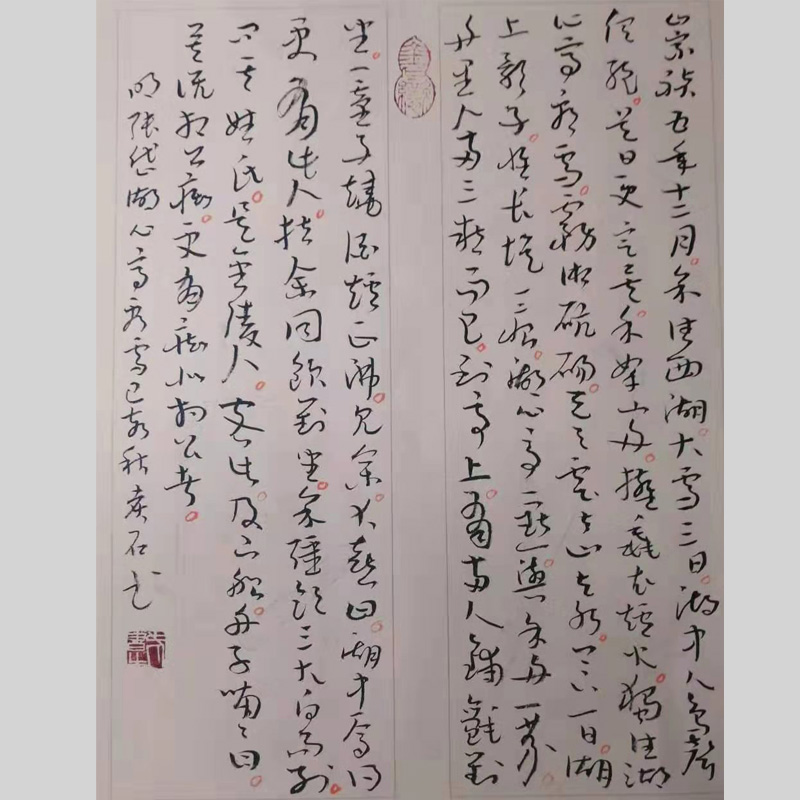 崇禎五年十二月。余住西湖。大雪三日。湖中人鳥聲
俱絕。是日更定矣。余拏小舟。擁毳衣爐火。獨往湖
心亭看雪。霧凇沆碭。天與雲與山與水。上下一白。湖
上影子。惟長堤一痕。湖心亭一點。與余舟一芥。
舟中人兩三粒而已。到亭上。有兩人鋪氈對
坐。一童子燒酒爐正沸。見余大喜曰。湖中焉得
更有此人。拉余同飲對坐。余強飲三大白而別。
問其姓氏。是金陵人。客此。及下船。舟子喃喃曰。
莫說相公痴。更有痴似相公者。
明張岱湖心亭看雪己亥秋 石書